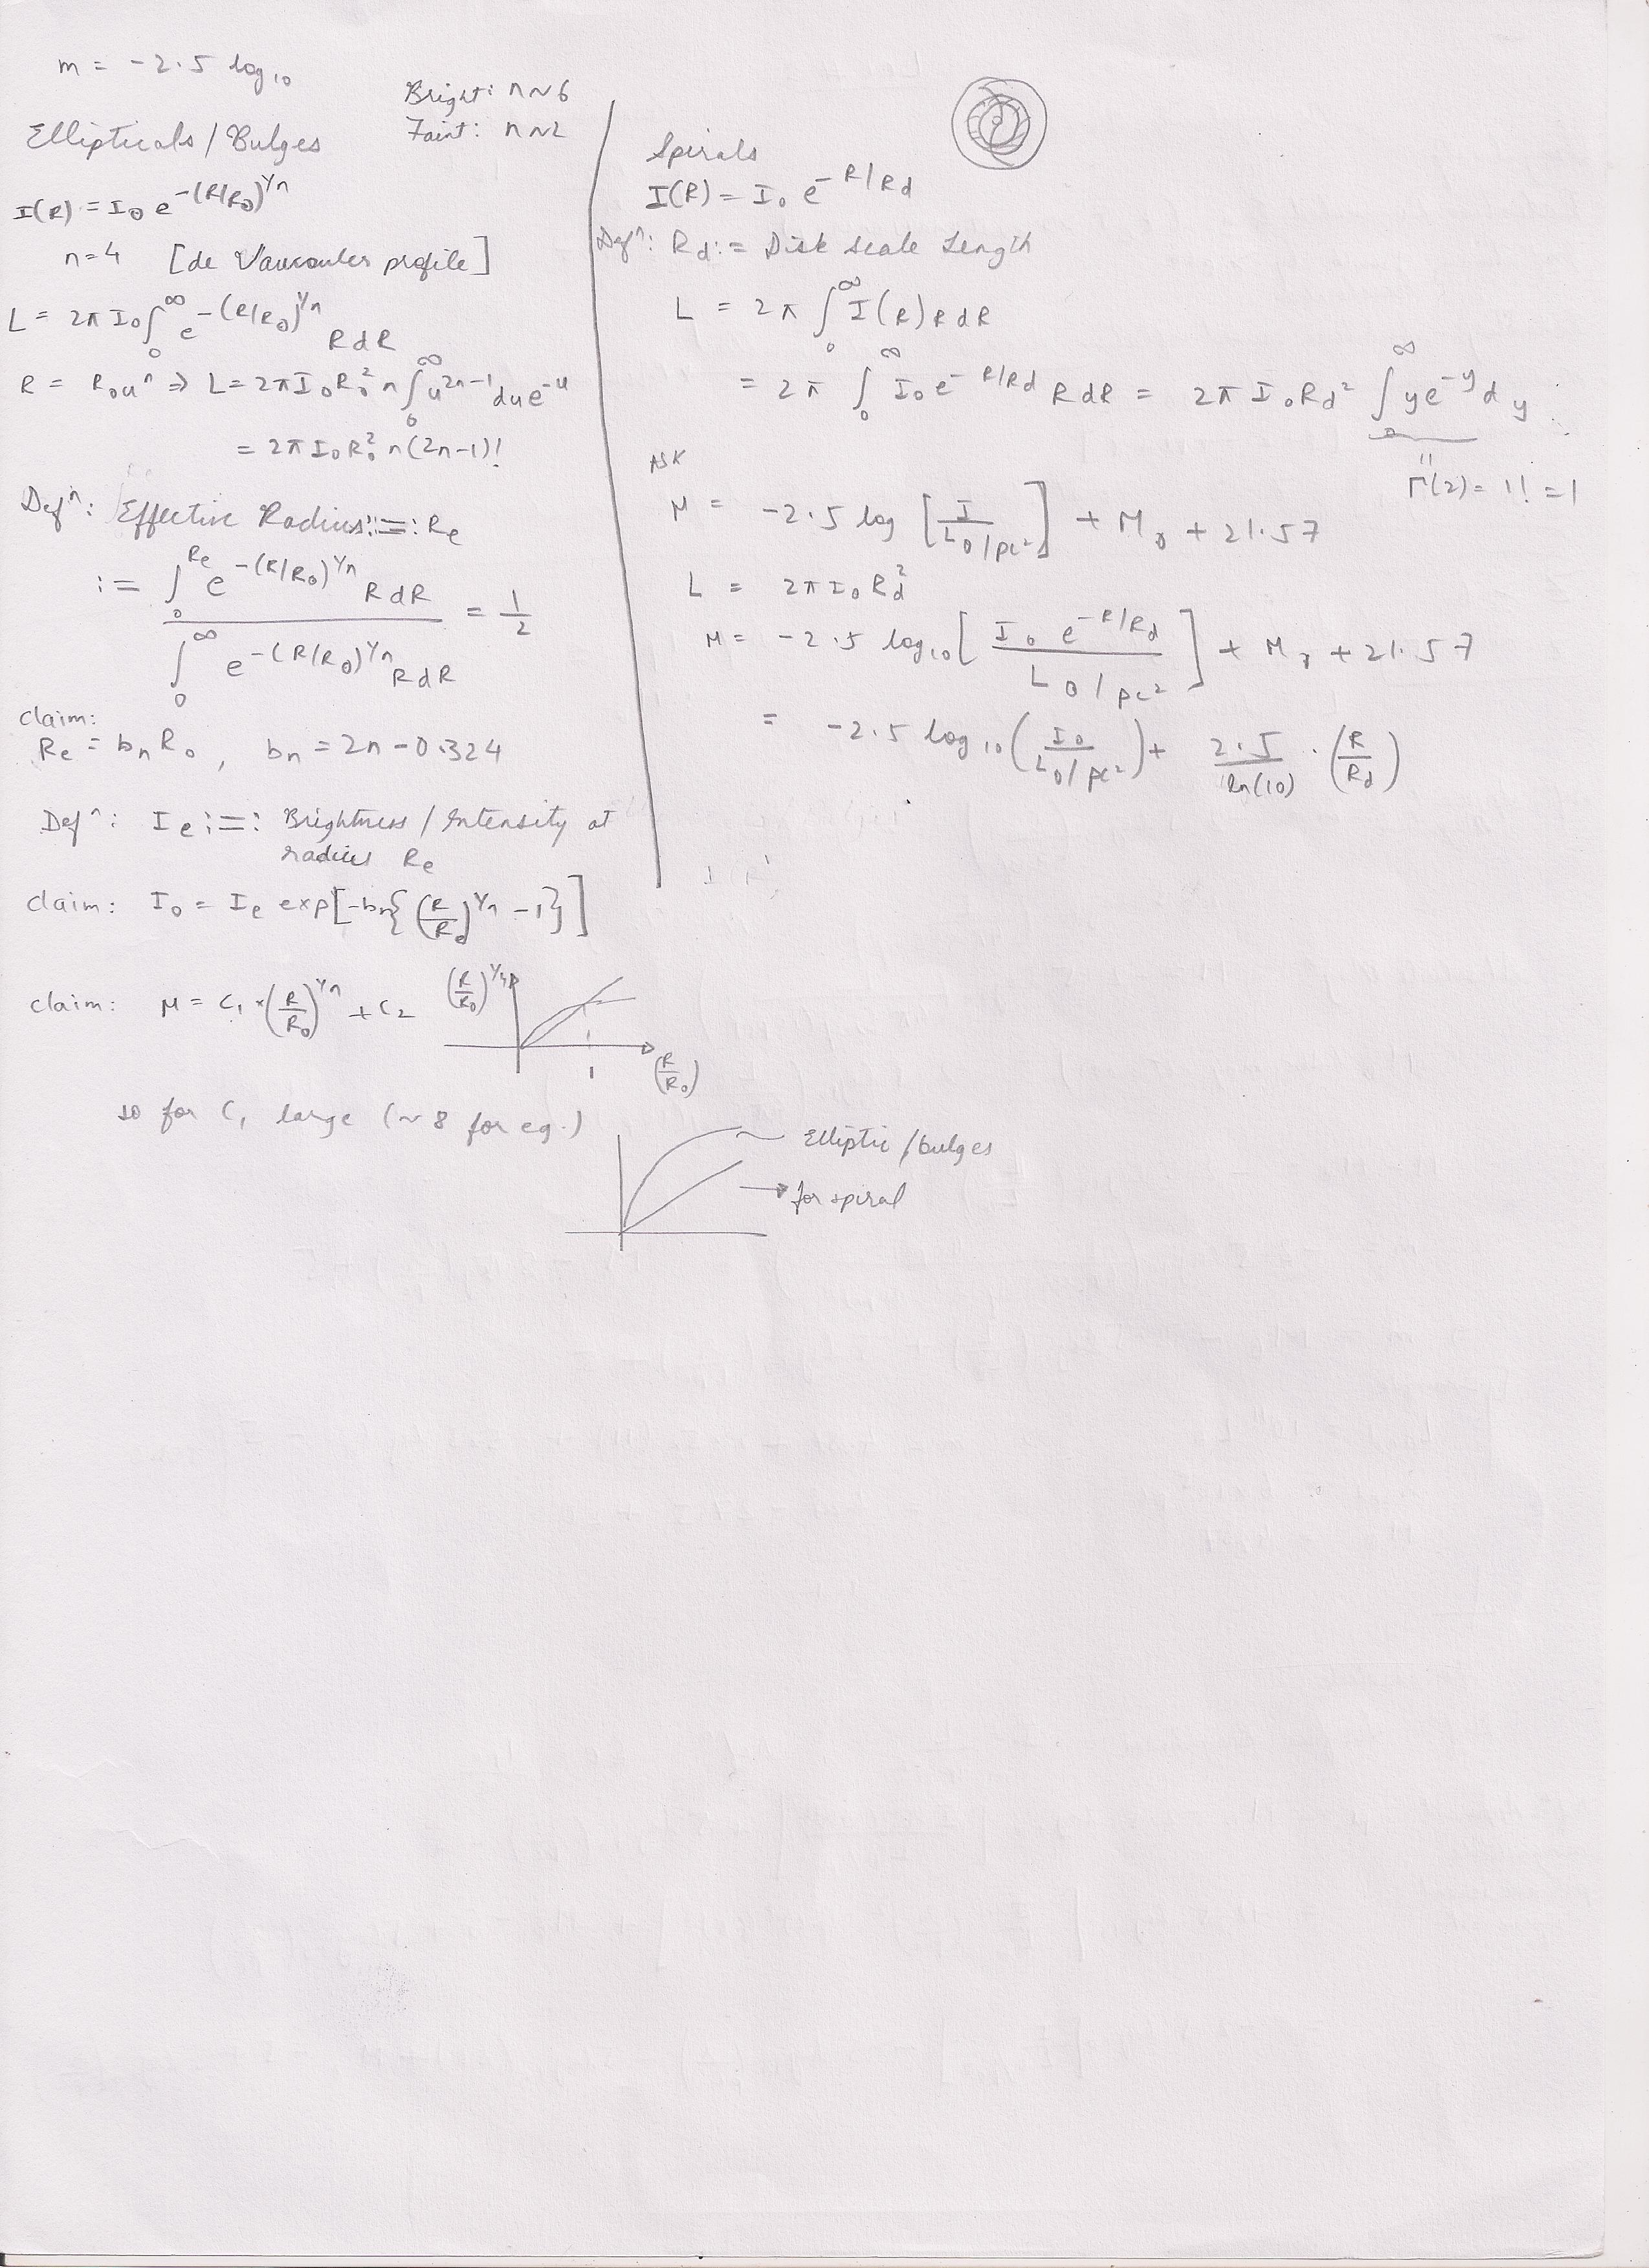 m = -2.5 log₁₀
Bright: n~6
Faint: n~2
Ellipticals / Bulges
I(R) = I₀ e^-(R/R₀)^1/n
n=4 [de Vaucouler profile]
L = 2π I₀ ∫₀^∞ e^-(R/R₀)^1/n R dR
R = R₀uⁿ ⇒ L = 2π I₀ R₀² n ∫₀^∞ u^2n-1 du e^-u
= 2π I₀ R₀² n (2n-1)!
Defⁿ: Effective Radius :=: Re
:= ∫₀^Re e^-(R/R₀)^1/n R dR / ∫₀^∞ e^-(R/R₀)^1/n R dR = 1/2
claim:
Re = bn R₀, bn = 2n - 0.324
Defⁿ: Ie :=: Brightness / Intensity at
radius Re
claim: I₀ = Ie exp[-bn{(R/Re)^1/n - 1}]
claim: μ = C₁ × (R/R₀)^1/n + C₂
(R/R₀)^1/4
1
(R/R₀)
so for C₁ large (~8 for eg.)
Elliptic / bulges
for spiral
Spirals
I(R) = I₀ e^-R/Rd
Defⁿ: Rd := Disk scale Length
L = 2π ∫₀^∞ I(R) R dR
= 2π ∫₀^∞ I₀ e^-R/Rd R dR = 2π I₀ Rd² ∫₀^∞ y e^-y dy
Γ(2) = 1! = 1
ASK
μ = -2.5 log [I / L⊙/pc²] + M⊙ + 21.57
L = 2π I₀ Rd²
μ = -2.5 log₁₀ [I₀ e^-R/Rd / L⊙/pc²] + M⊙ + 21.57
= -2.5 log₁₀ (I₀ / L⊙/pc²) + 2.5/ln(10) · (R/Rd)